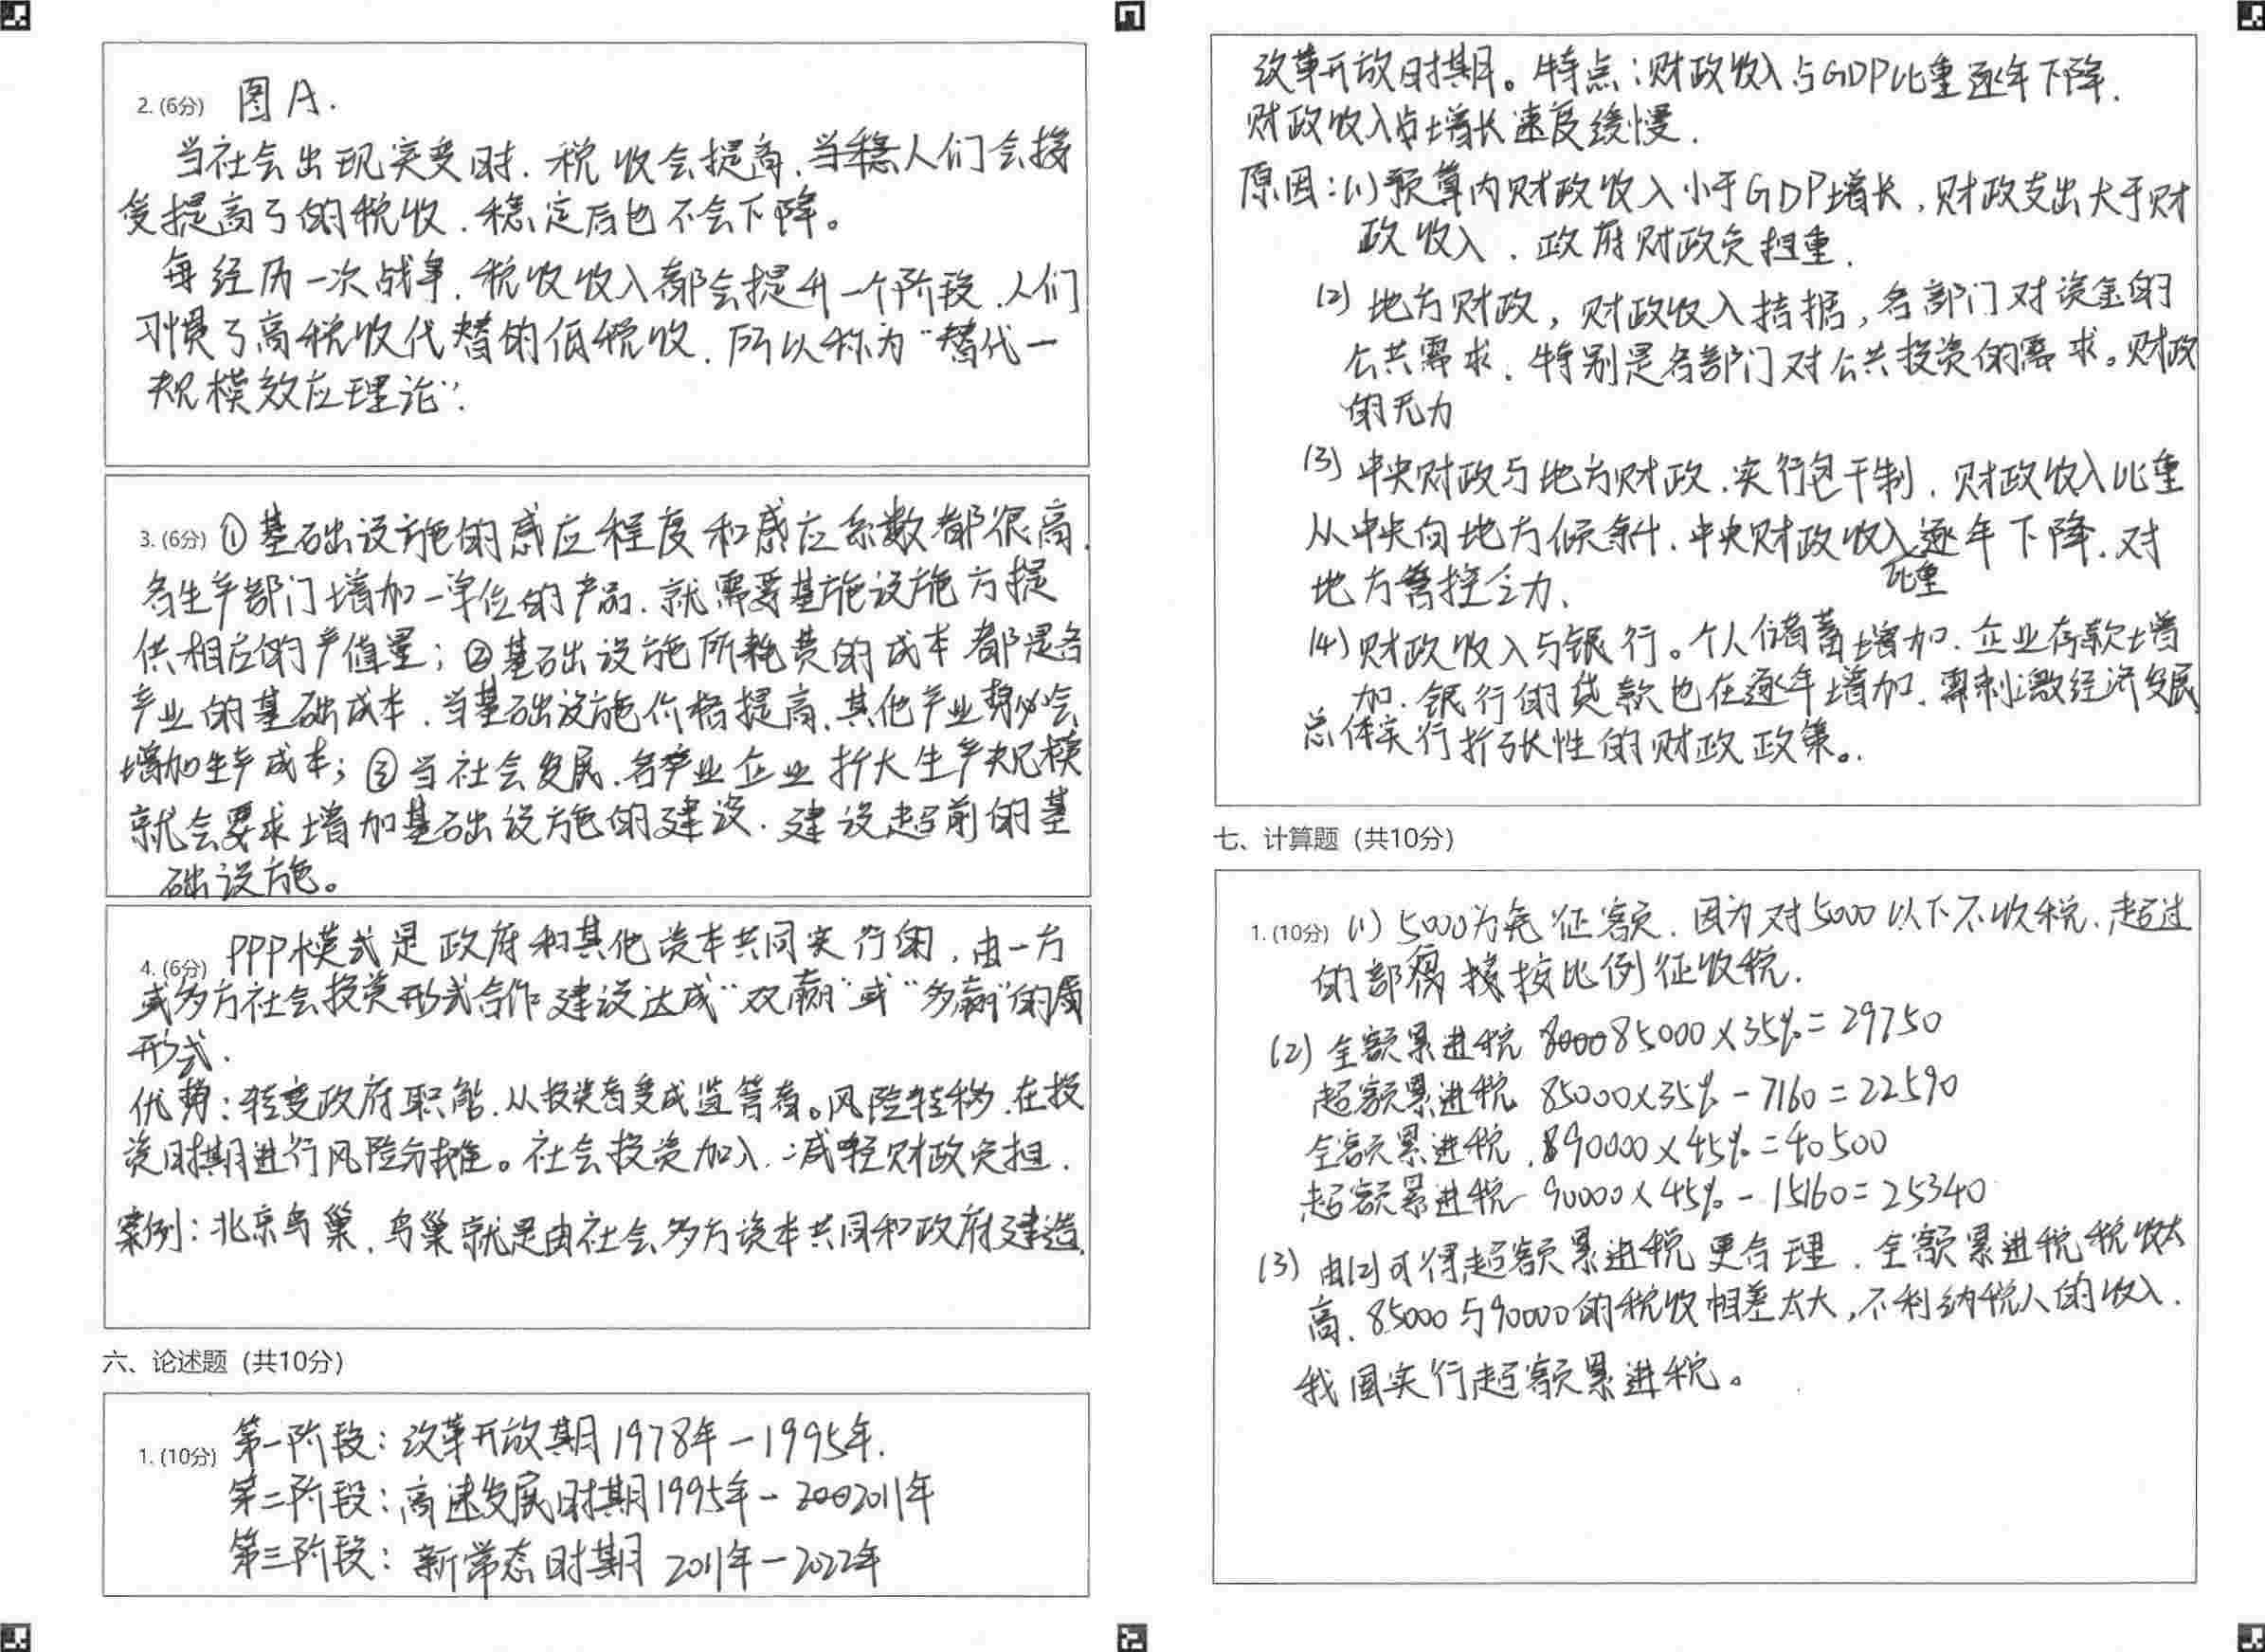 2. (6分) 图A.
当社会出现突变时.税收会提高.当稳人们会接
受提高了的税收.稳定后也不会下降。
每经历一次战争.税收收入都会提升一个阶段.人们
习惯了高税收代替的低税收.所以称为“替代一
规模效应理论”.
3. (6分) ①基础设施的感应程度和感应系数都很高.
各生产部门增加一单位的产品.就需要基施设施方提
供相应的产值量;②基础设施所耗费的成本都是各
产业的基础成本.当基础设施价格提高.其他产业势必会
增加生产成本;③当社会发展.各产业企业扩大生产规模
就会要求增加基础设施的建设.建设超前的基
础设施。
4. (6分) PPP模式是政府和其他资本共同实行的,由一方
或多方社会投资形式合作建设达成“双赢”或“多赢”的
形式.
优势:转变政府职能.从投资者变成监管者。风险转移.在投
资时期进行风险分摊。社会投资加入.减轻财政负担.
案例:北京鸟巢.鸟巢就是由社会多方资本共同和政府建造.
六、论述题(共10分)
1. (10分) 第一阶段:改革开放期1978年-1995年.
第二阶段:高速发展时期1995年-2002011年
第三阶段:新常态时期 2011年-2022年
改革开放时期。特点:财政收入与GDP比重逐年下降.
财政收入占增长速度缓慢.
原因:(1)预算内财政收入小于GDP增长,财政支出大于财
政收入.政府财政负担重.
(2)地方财政,财政收入拮据,各部门对资金的
公共需求.特别是各部门对公共投资的需求。财政
的无力
(3)中央财政与地方财政.实行包干制.财政收入比重
从中央向地方倾斜.中央财政收入逐年下降.对
比重
地方管控乏力.
(4)财政收入与银行。个人储蓄增加.企业存款增
加.银行的贷款也在逐年增加.需刺激经济发展
总体实行扩张性的财政政策。.
七、计算题(共10分)
1. (10分) (1) 5000为免征额.因为对5000以下不收税.超过
的部分按比例征收税.
(2) 全额累进税 800085000×35%=29750
超额累进税 85000×35%-7160=22590
全额累进税.890000×45%=40500
超额累进税 90000×45%-15160=25340
(3) 由(2)可得超额累进税更合理.全额累进税税收太
高.85000与90000的税收相差太大,不利纳税人的收入.
我国实行超额累进税。